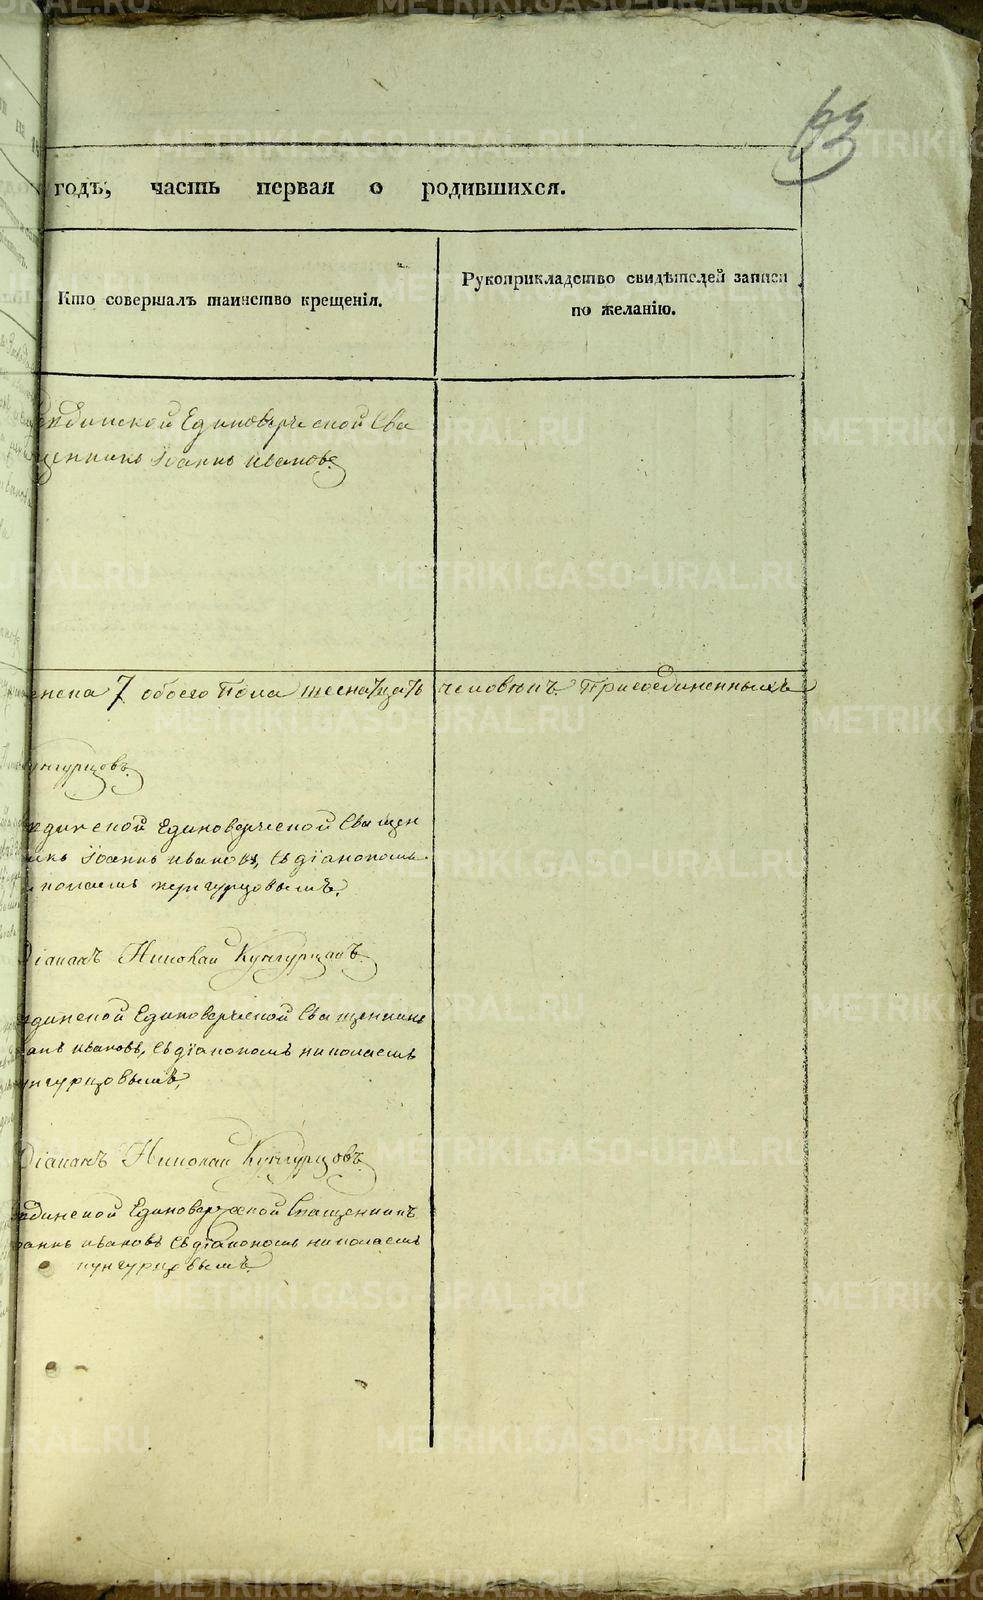 63
годъ, часть первая о родившихся.
Кто совершалъ таинство крещенія.
Рукоприкладство свидѣтелей записи
по желанію.
Единоверческой Свя
щенникъ Іоаннъ Ивановъ
7 обоего пола человѣкъ. Присоединенныхъ
Кунгурцовъ.
Единоверческой Священ
никъ Іоаннъ Ивановъ, съ діакономъ
Николаемъ кунгурцовымъ.
Діаконъ Николай Кунгурцовъ.
Единоверческой Священникъ
Ивановъ, съ діакономъ николаемъ
кунгурцовымъ,
Діаконъ Николай Кунгурцовъ.
Единоверческой Священникъ
Ивановъ съ діакономъ николаемъ
кунгурцовымъ.
METRIKI.GASO-URAL.RU